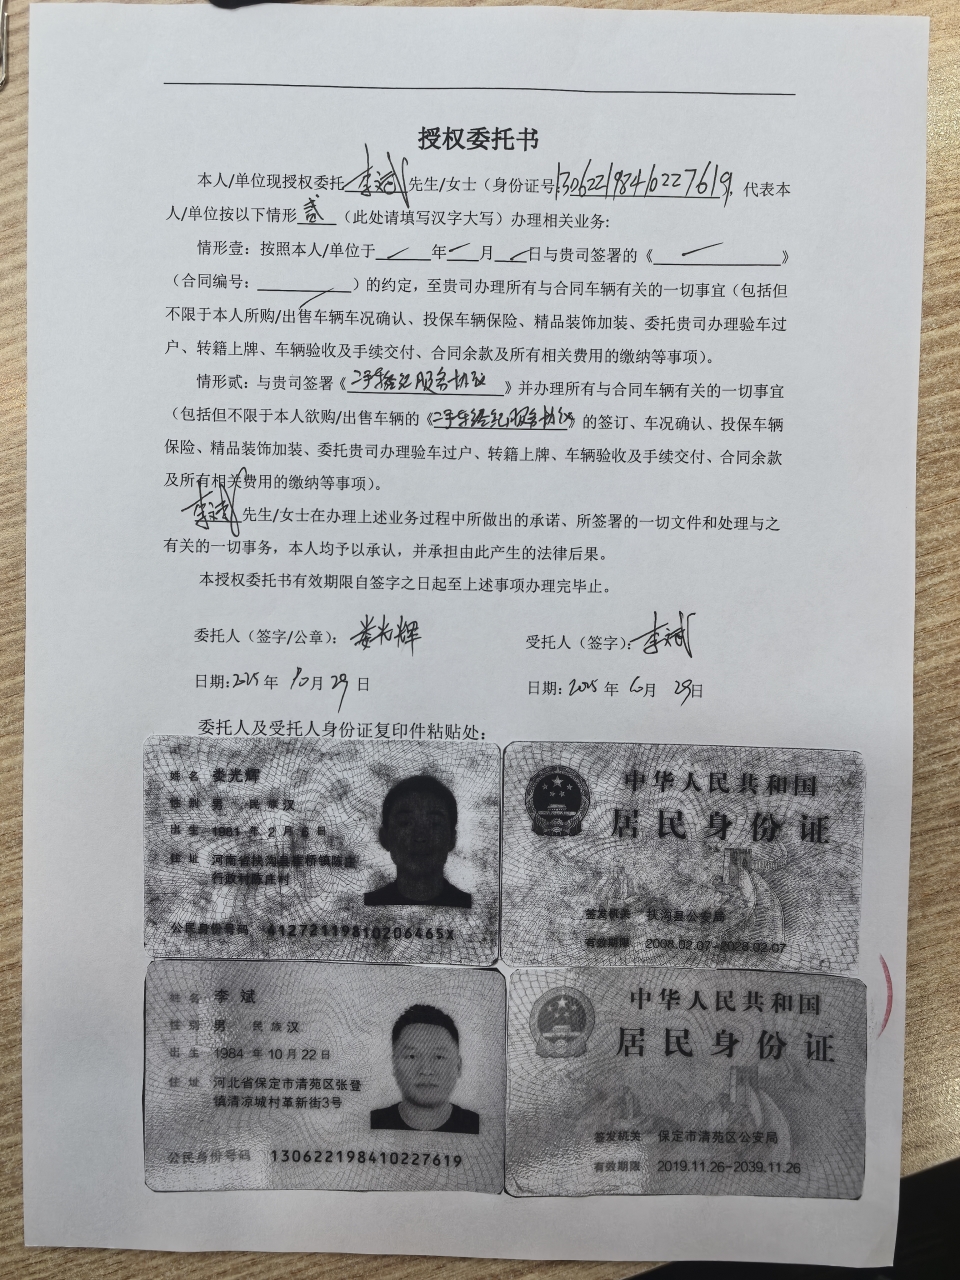 授权委托书
本人/单位现授权委托李斌先生/女士（身份证号130622198410227619，代表本
人/单位按以下情形贰（此处请填写汉字大写）办理相关业务:
情形壹：按照本人/单位于 年 月 日与贵司签署的《 》
（合同编号： ）的约定，至贵司办理所有与合同车辆有关的一切事宜（包括但
不限于本人所购/出售车辆车况确认、投保车辆保险、精品装饰加装、委托贵司办理验车过
户、转籍上牌、车辆验收及手续交付、合同余款及所有相关费用的缴纳等事项）。
情形贰：与贵司签署《二手车经纪服务协议》并办理所有与合同车辆有关的一切事宜
（包括但不限于本人欲购/出售车辆的《二手车经纪服务协议》的签订、车况确认、投保车辆
保险、精品装饰加装、委托贵司办理验车过户、转籍上牌、车辆验收及手续交付、合同余款
及所有相关费用的缴纳等事项）。
李斌先生/女士在办理上述业务过程中所做出的承诺、所签署的一切文件和处理与之
有关的一切事务，本人均予以承认，并承担由此产生的法律后果。
本授权委托书有效期限自签字之日起至上述事项办理完毕止。
委托人（签字/公章）：娄光辉 受托人（签字）：李斌
日期:2025年 10月 29 日 日期: 2025 年 10月 29日
委托人及受托人身份证复印件粘贴处：
姓名 娄光辉
性别 男 民族 汉
出生 1981 年 2 月 6 日
住址 河南省扶沟县 桥镇陈庄
行政村陈庄村
公民身份号码 41272119810206465X
中华人民共和国
居民身份证
签发机关 扶沟县公安局
有效期限 2008.02.07-2028.02.07
姓名 李斌
性别 男 民族 汉
出生 1984 年 10 月 22 日
住址 河北省保定市清苑区张登
镇清凉城村革新街3号
公民身份号码 130622198410227619
中华人民共和国
居民身份证
签发机关 保定市清苑区公安局
有效期限 2019.11.26-2039.11.26